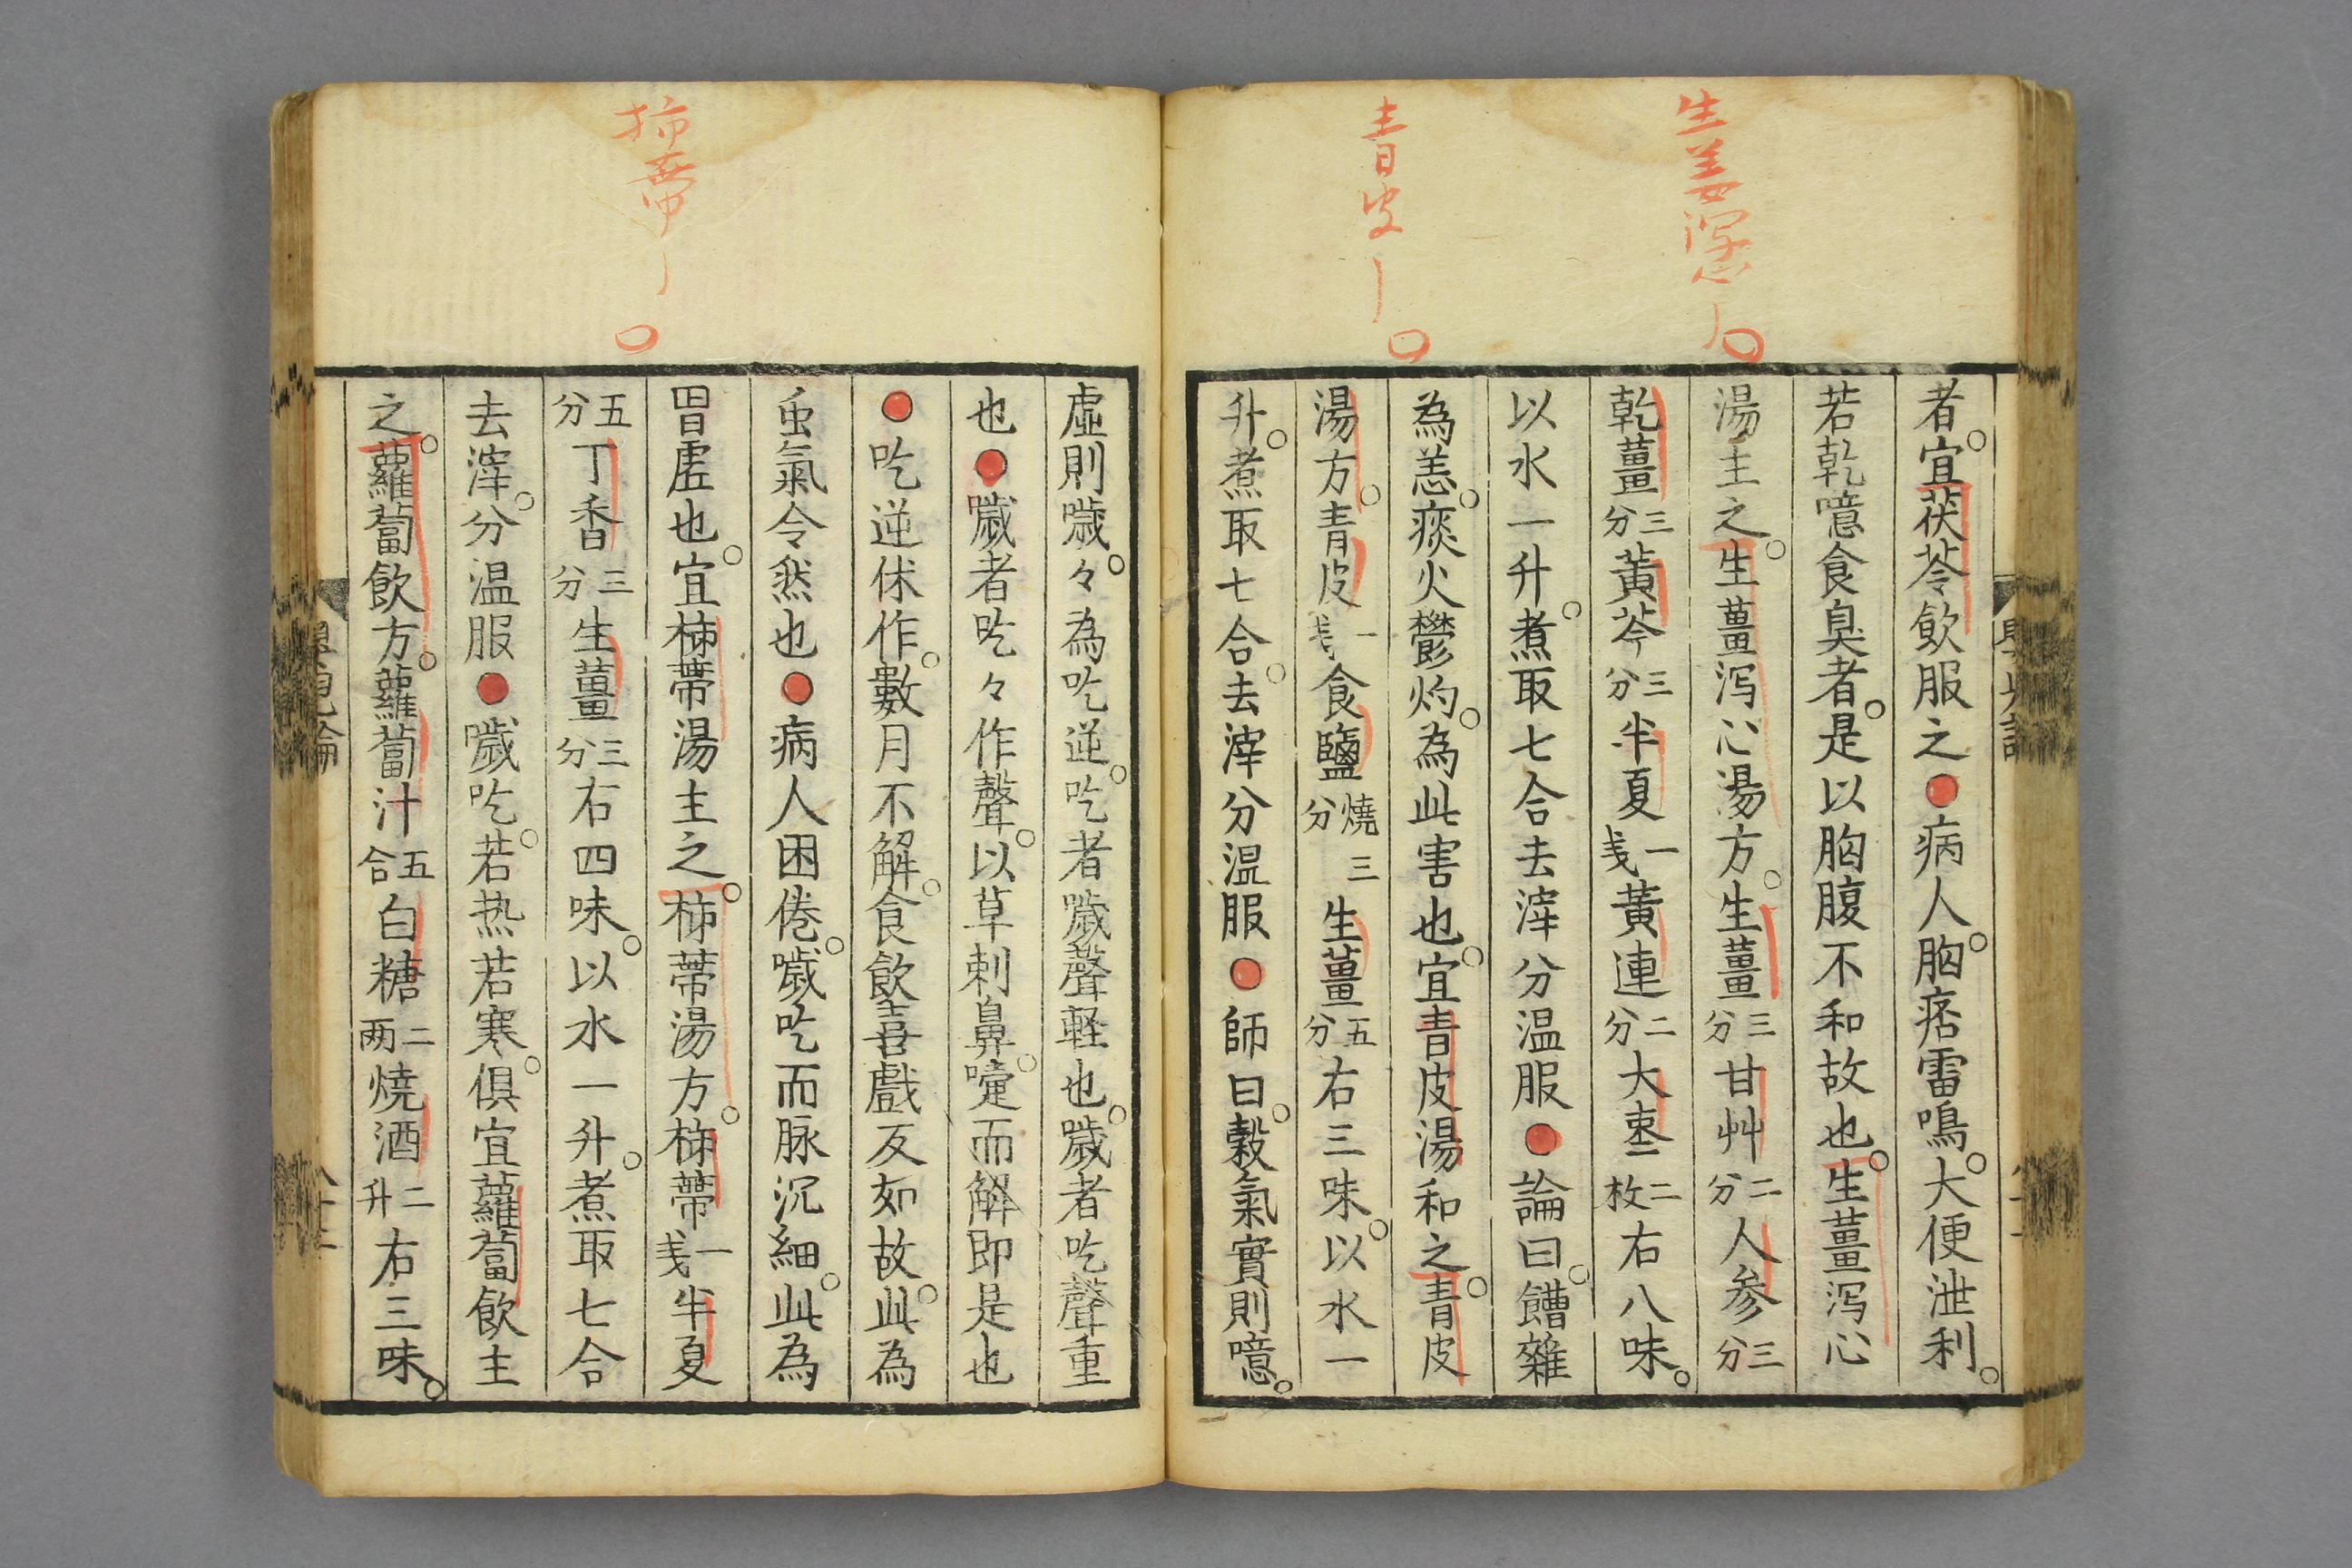 生姜泻心
青皮
柿蒂
者宜茯苓飲服之●病人胸痞雷鳴大便泄利
若乾噫食臭者是以胸腹不和故也生薑泻心
湯主之生薑泻心湯方生薑三分甘艸二分人参三分
乾薑三分黃芩三分半夏一戋黃連二分大枣二枚右八味
以水一升煮取七合去滓分温服●論曰饐雜
為恙痰火鬱灼為此害也宜青皮湯和之青皮
湯方青皮一戋食鹽燒三分生薑五分右三味以水一
升煮取七合去滓分温服●師曰穀氣實則噫
虛則噦々為吃逆吃者噦聲軽也噦者吃聲重
也●噦者吃々作聲以草刺鼻嚏而解即是也
●吃逆休作數月不解食飲善戲反如故此為
虫氣令然也●病人困倦噦吃而脉沉細此為
胃虚也宜柿蒂湯主之柿蒂湯方柿蒂一戋半夏
五分丁香三分生薑三分右四味以水一升煮取七合
去滓分温服●噦吃若热若寒俱宜蘿蔔飲主
之蘿蔔飲方蘿蔔汁五合白糖二两燒酒二升右三味